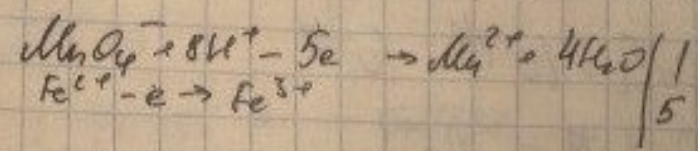 MnO₄⁻ + 8H⁺ - 5e → Mn²⁺ + 4H₂O | 1
Fe²⁺ - e → Fe³⁺ | 5